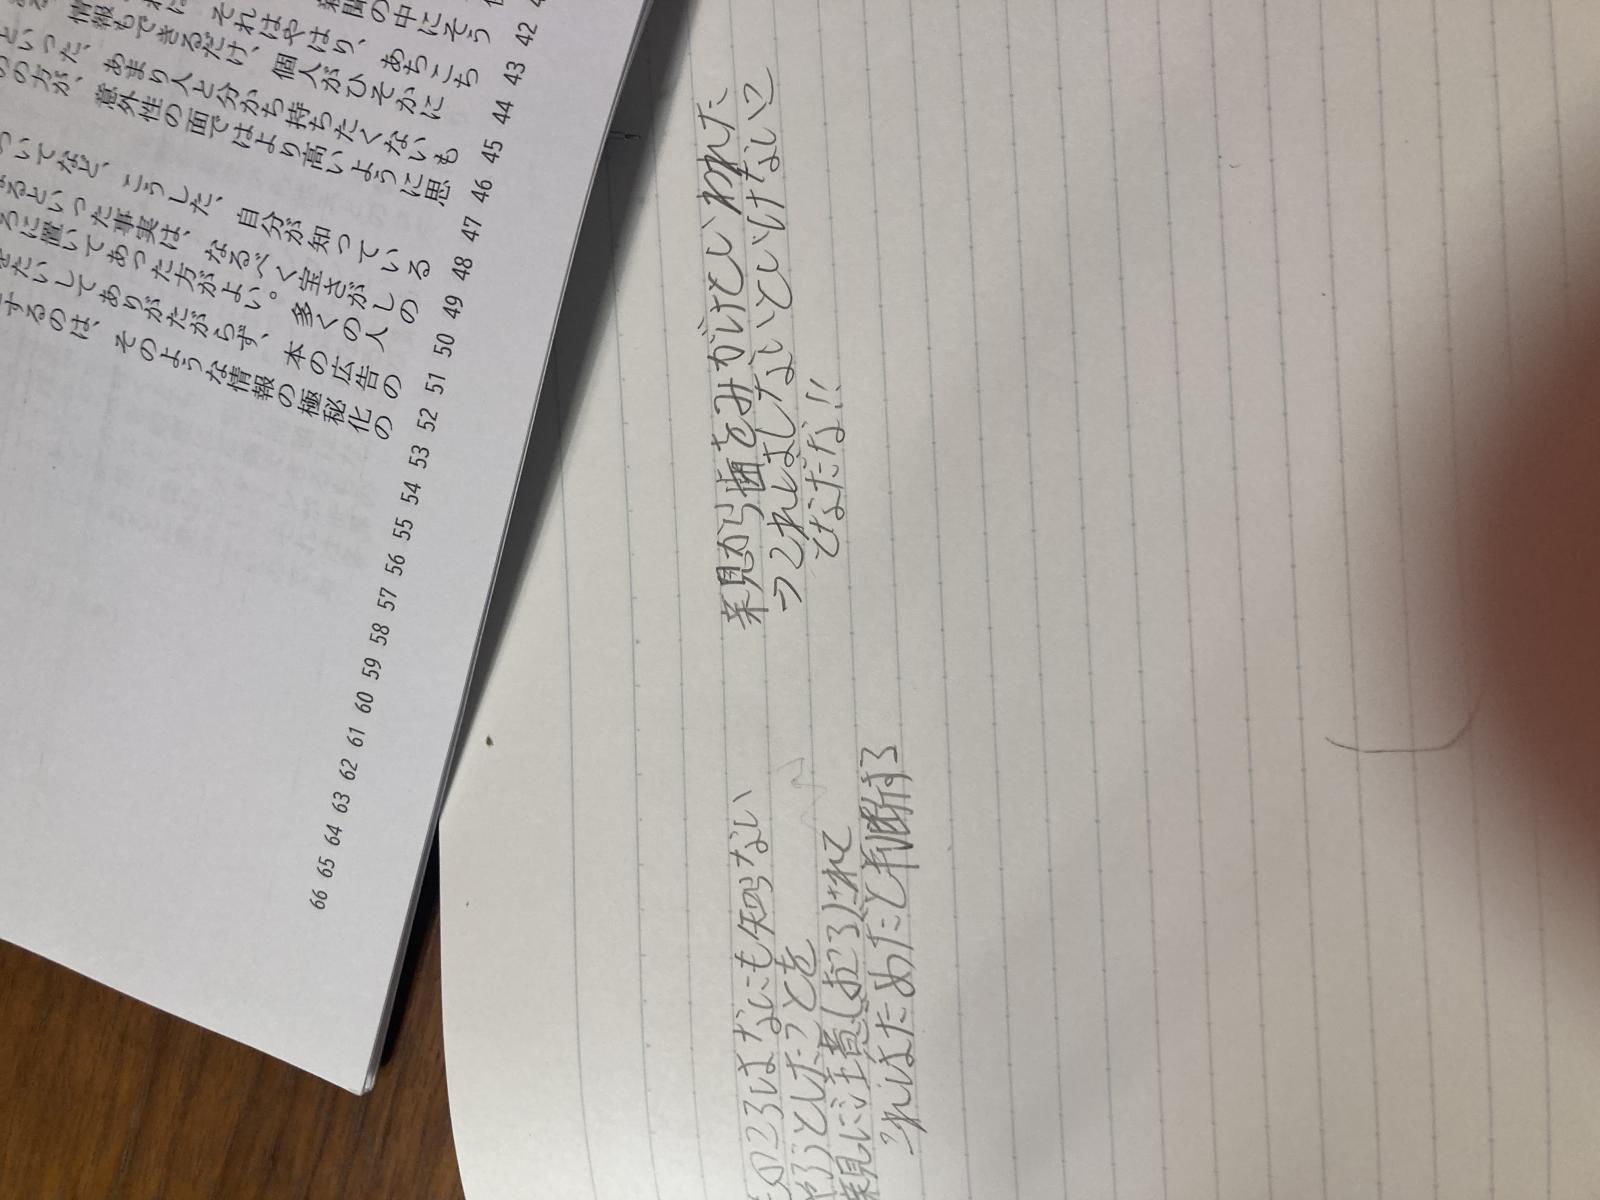 42
43
44
45
46
47
48
49
50
51
52
53
54
55
56
57
58
59
60
61
62
63
64
65
66
の中にそう
それはやはり、あちこち
情報もできるだけ、個人がひそかに
といった、あまり人と分かち持ちたくないも
の方が、意外性の面ではより高いように思
ついてなど、こうした、自分が知っている
るといった事実は、なるべく宝さがしの
ろに置いてあった方がよい。多くの人の
たいしてありがたがらず、本の広告の
するのは、そのような情報の極秘化の
親から歯をみがけといわれた
つこれはしないといけないこ
となだな!!
ころはなにも知らない
やろうとしたことを
親に注意しおこられて
これはだめだと判断する